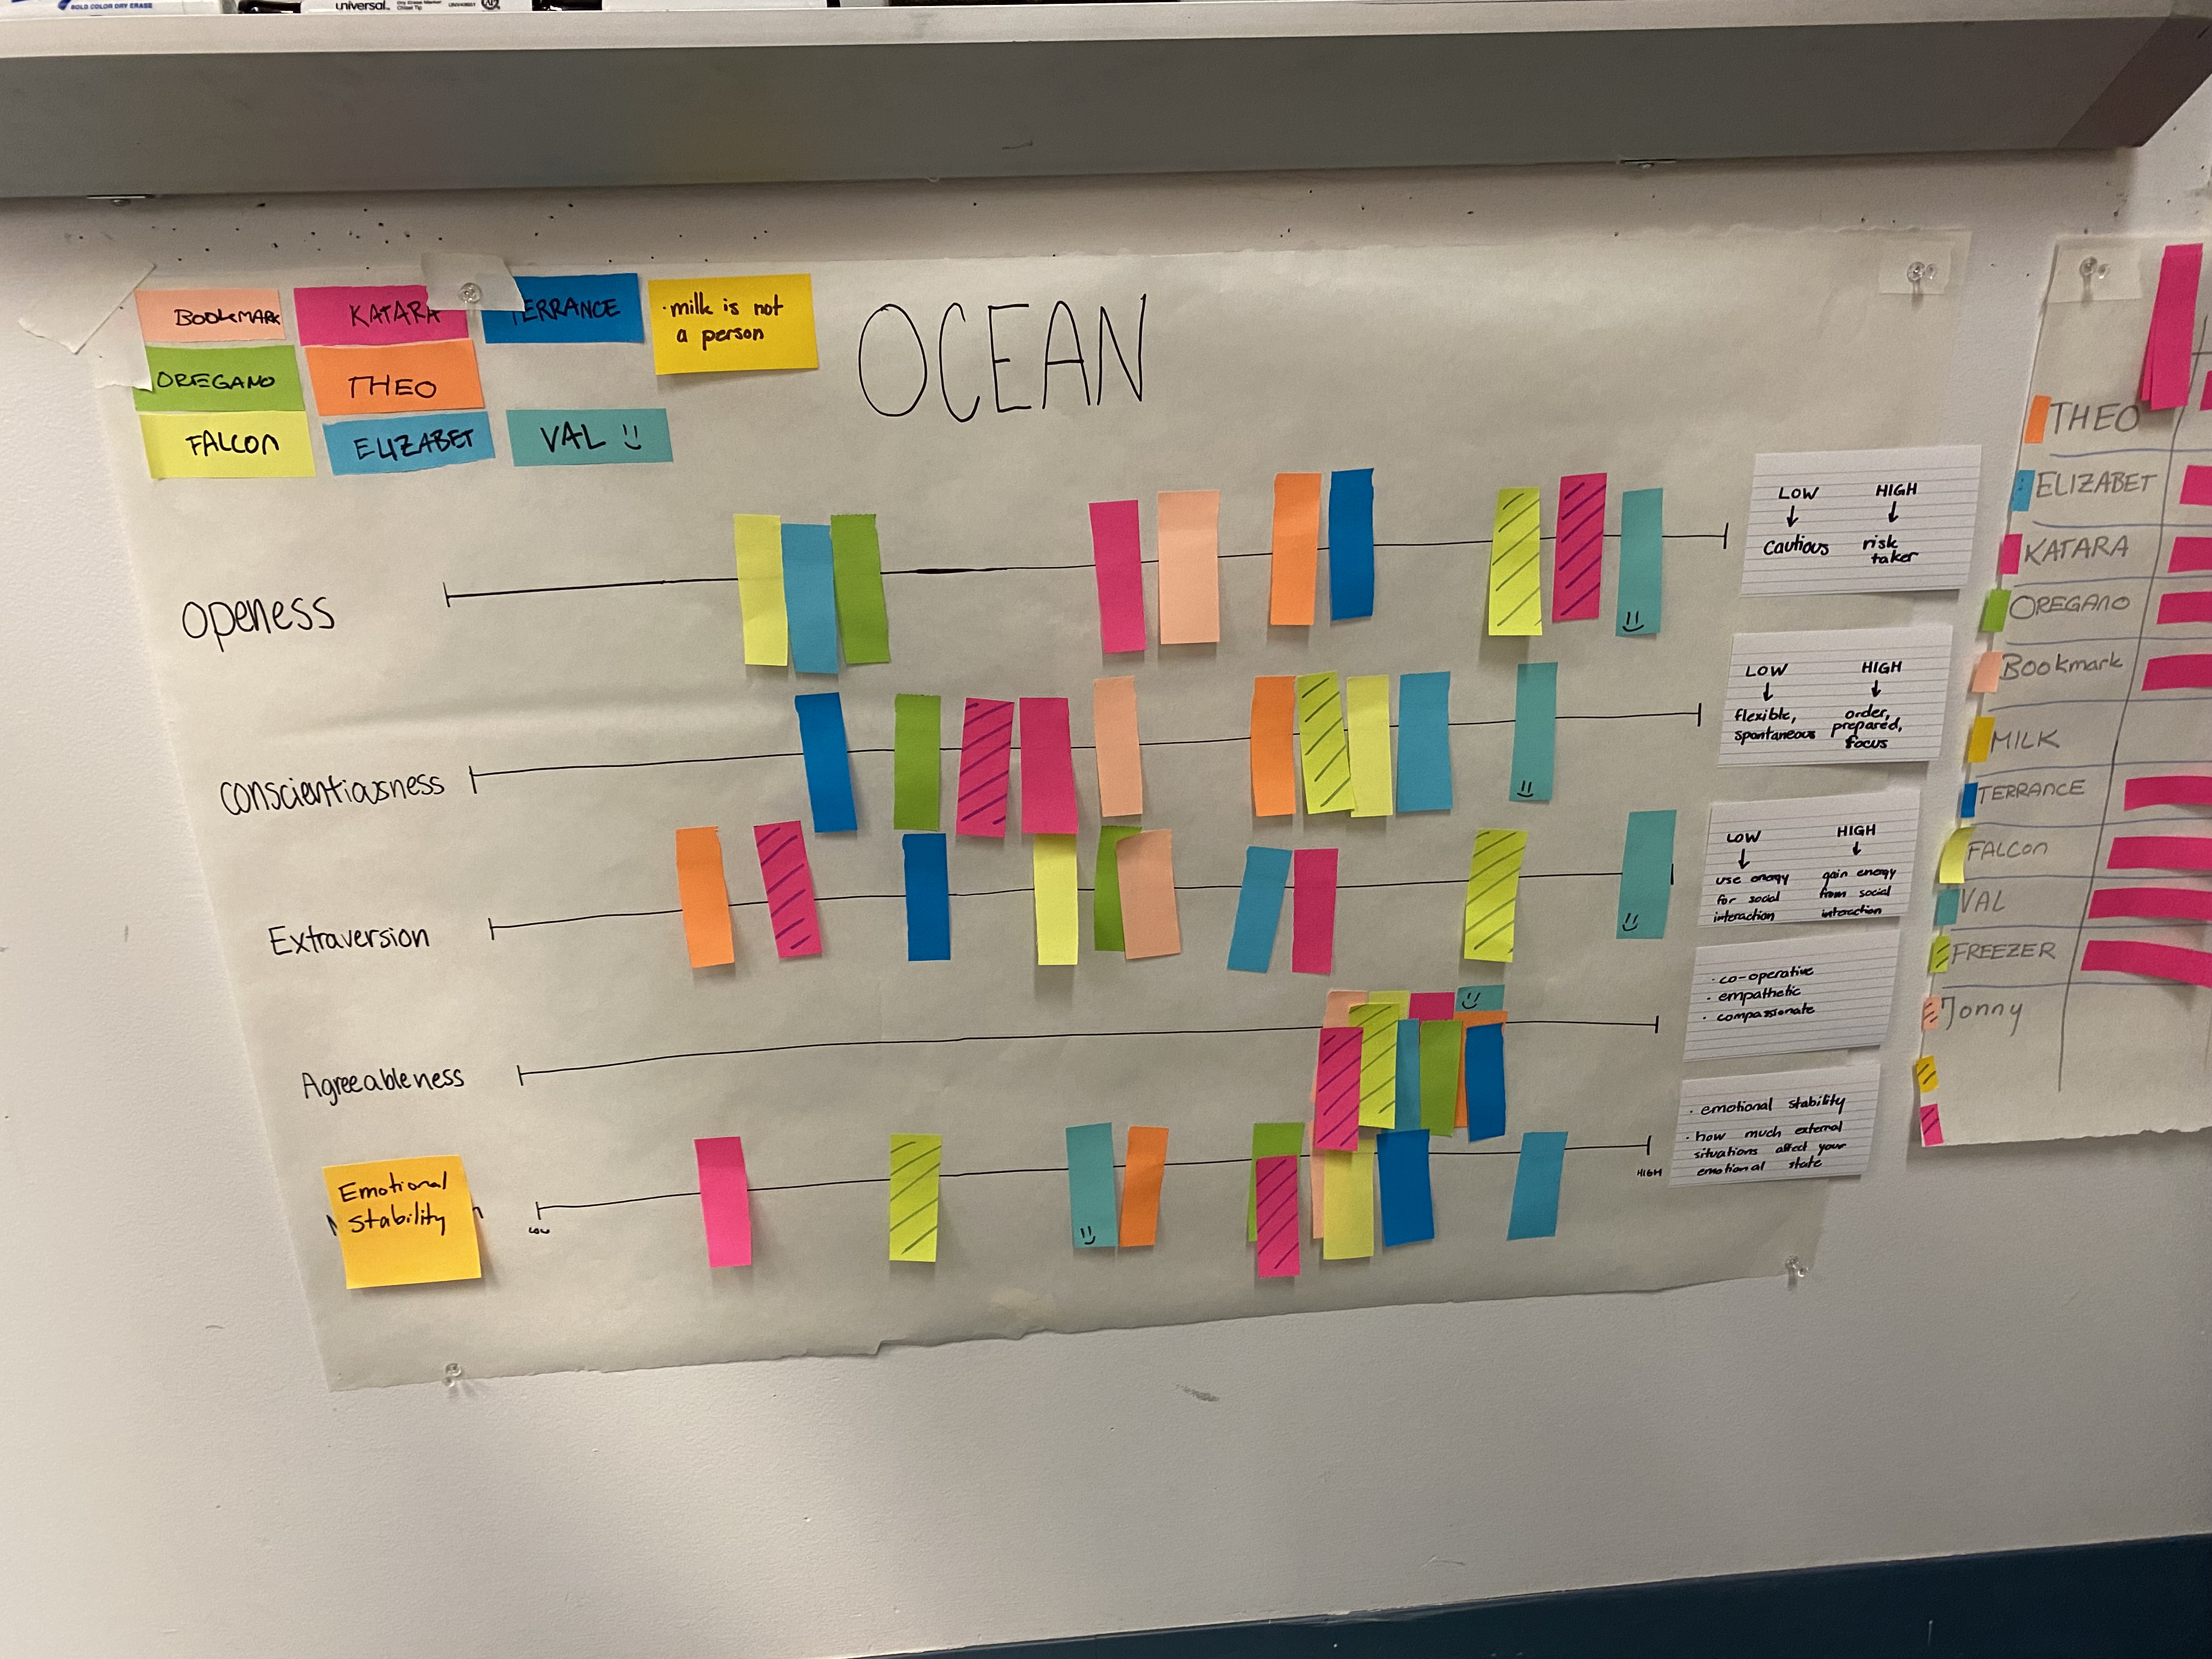 BOLD COLOR DRY ERASE
universal
BOOKMARK
KATARA
TERRANCE
· milk is not
a person
OREGANO
THEO
FALCON
ELIZABET
VAL
OCEAN
OPENESS
LOW HIGH
Cautious risk
taker
Conscientiousness
LOW HIGH
flexible, order,
spontaneous prepared,
focus
Extraversion
LOW HIGH
use energy gain energy
for social from social
interaction interaction
Agreeableness
· co-operative
· empathetic
· compassionate
Emotional
stability
LOW
HIGH
· emotional stability
· how much external
situations affect your
emotional state
THEO
ELIZABET
KATARA
OREGANO
Bookmark
MILK
TERRANCE
FALCON
VAL
FREEZER
Jonny